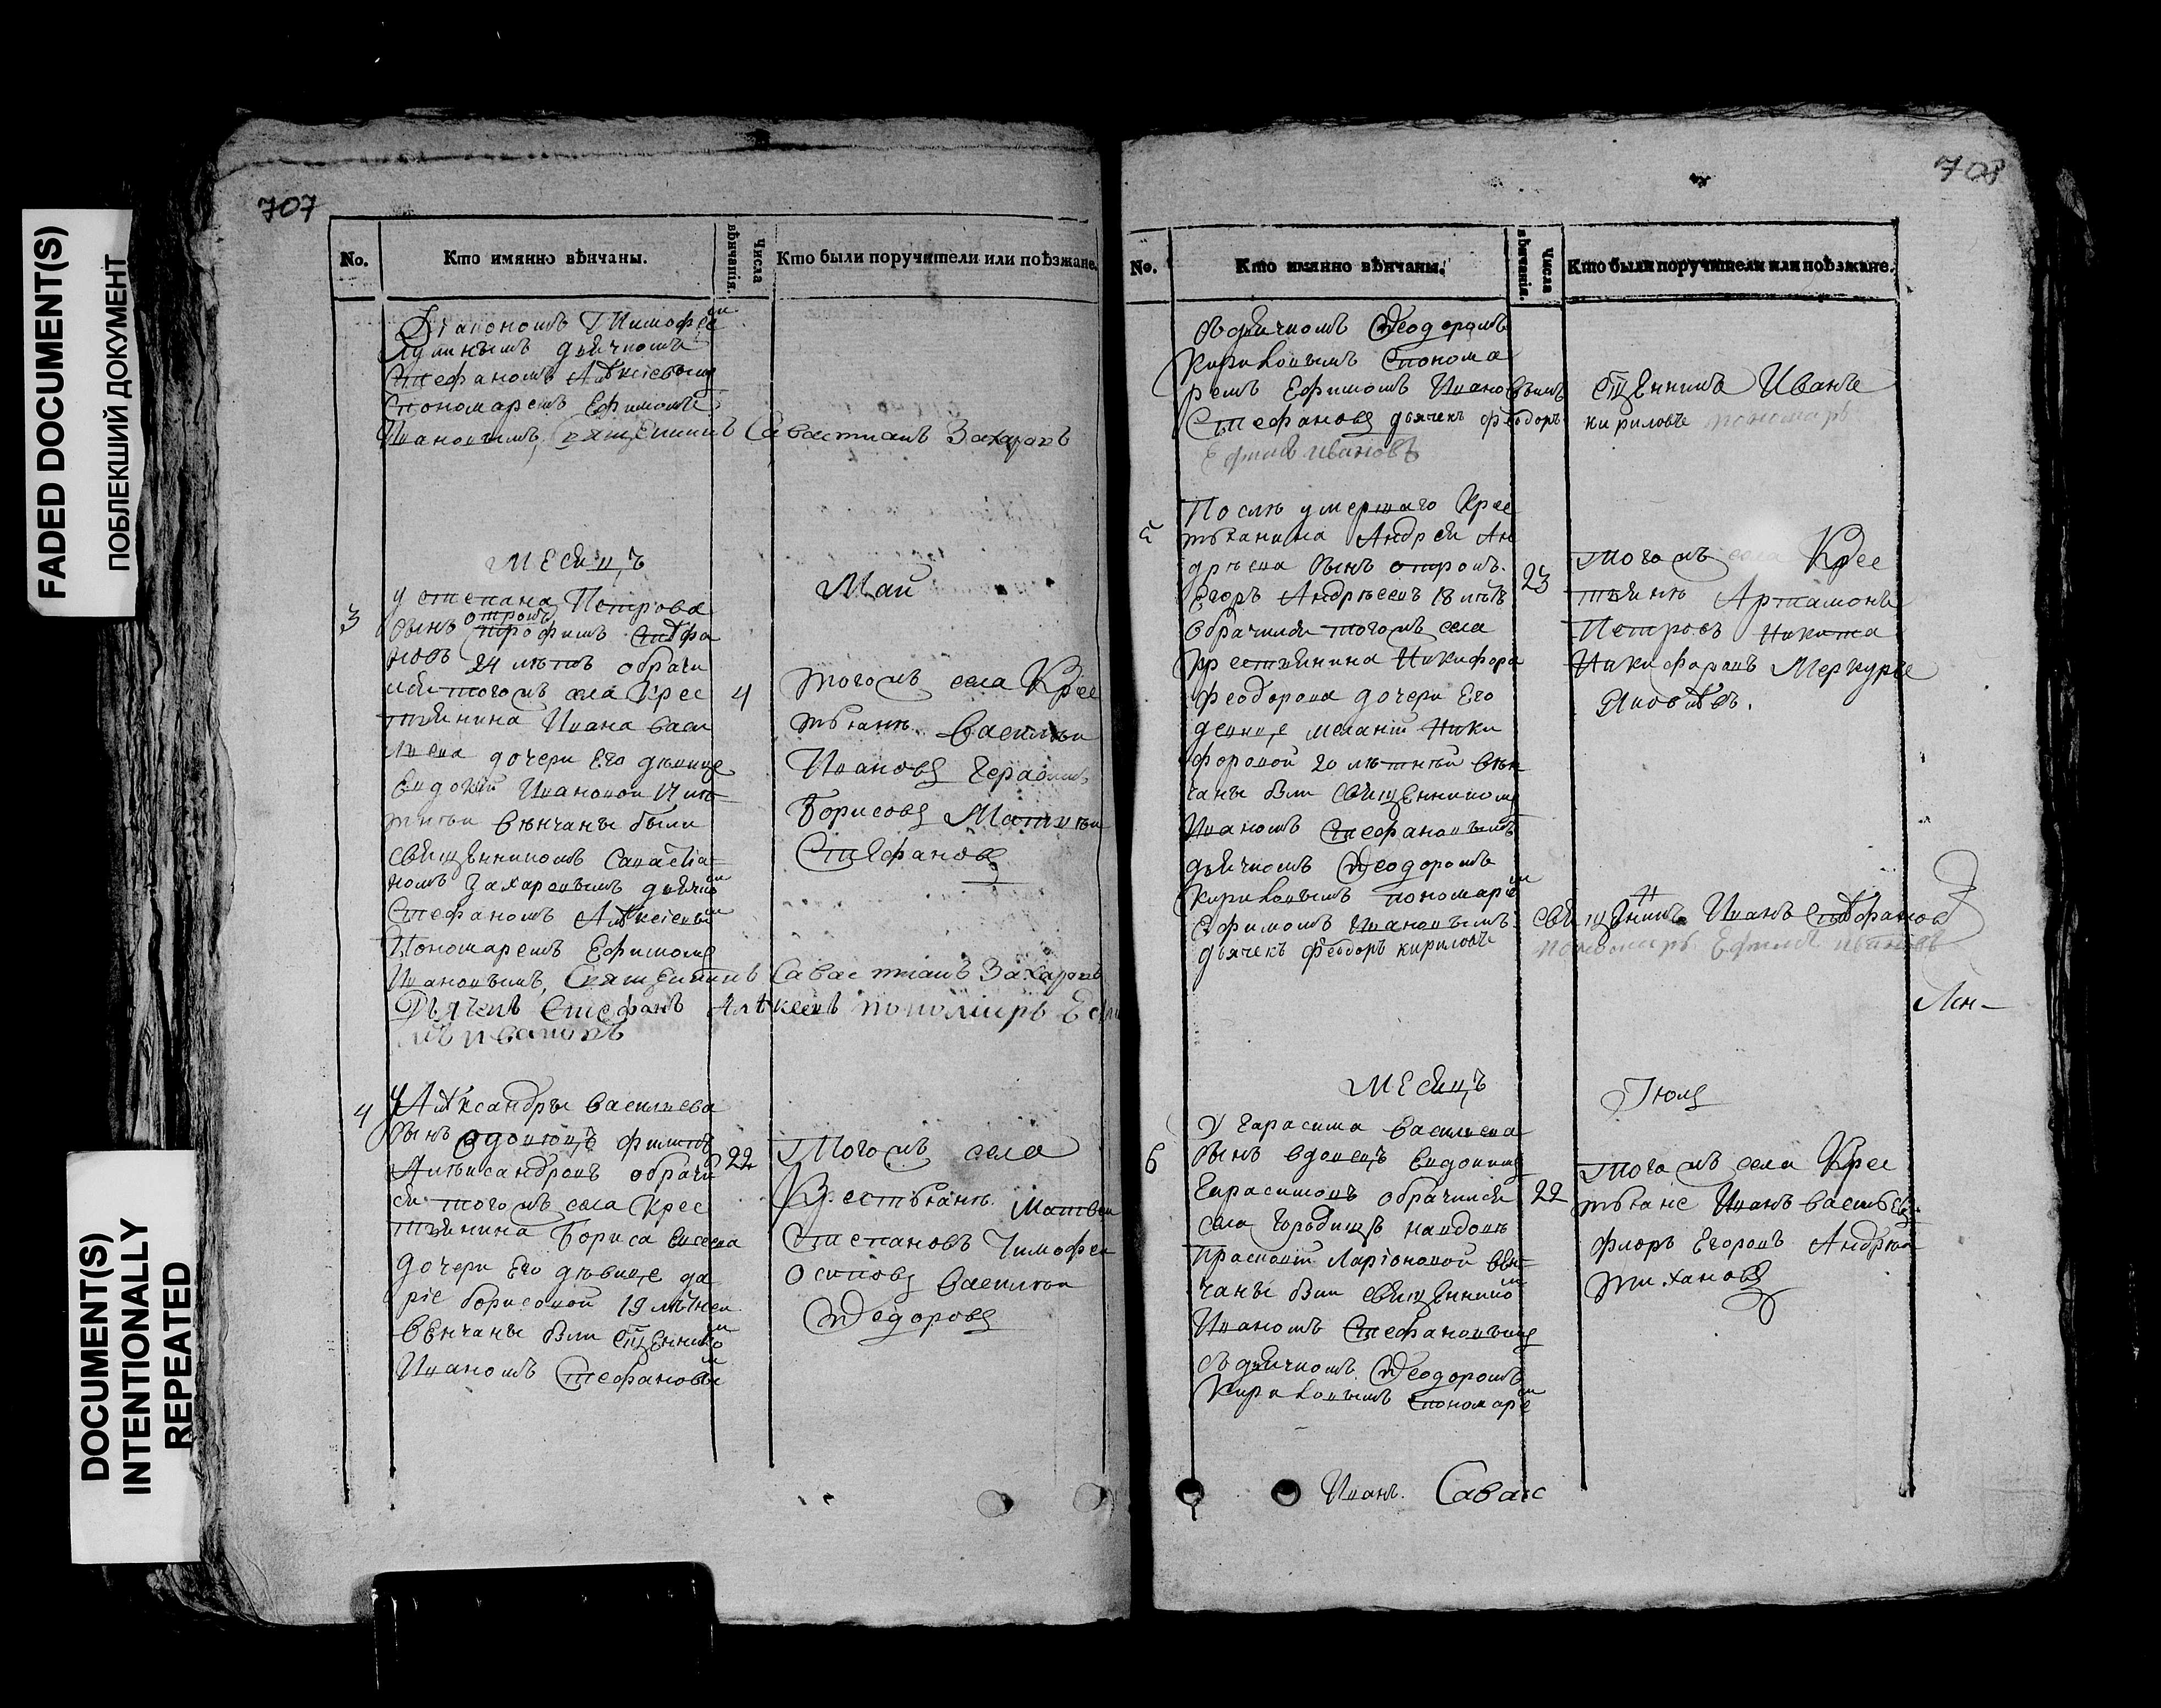 FADED DOCUMENT(S)
ПОБЛЕКШИЙ ДОКУМЕНТ
DOCUMENT(S)
INTENTIONALLY
REPEATED
707
No. Кто имянно вѣнчаны. Числа вѣнчанія. Кто были поручители или поѣзжане.
Диакономъ Тимофее
дьячкомъ
Стефаномъ Алѣксіевым
Спономаремъ Ефимомъ
Ивановымъ, священникъ Савастианъ Захаровъ
Месяцъ Маи
3 у степана Петрова
сынъ отрокъ трофимъ Стѣфа
новъ 24 лѣтъ обрачи
лся тогожъ села Крес
тьянина Ивана Васи
лиева дочери Его девице
Евдокіи Ивановои 17 лѣ
тнеи венчаны были
священникомъ Савастіа
номъ Захаровымъ дьячко
Стефаномъ Алѣксіевым
Пономаремъ Ефимомъ
Ивановымъ, Священникъ Савастианъ Захаровъ
Дьячекъ Стефанъ Алѣксеевъ пономарь Ефи
мъ Ивановъ
4 тогожъ села Крес
тьянѣ Василеи
Ивановъ Герасимъ
Борисовъ Матвеи
Стефановъ
4 У Алѣксандры Василиева
сынъ вдовецъ филипъ
Алѣксандровъ обрачи
ся тогожъ села Крес
тьянина Бориса Евсеева
дочери Его девице да
ріе борисовой 19 лѣтнеи
венчаны были сщеннико
Иваномъ Стефановы
22 тогожъ села
Крестьянѣ Матвеи
Степановъ Тимофеи
Осиповъ Василеи
Феодоровъ
708
No. Кто имянно вѣнчаны. Числа вѣнчанія. Кто были поручители или поѣзжане.
здьячкомъ Феодоромъ
Кириловымъ Спонома
ремъ Ефимомъ Ивановымъ сщенникъ Иванъ
Стефановъ дьячекъ феодоръ кириловъ пономарь
Ефимъ Ивановъ
5 После умершаго Крес
тьянина Андреи Ан
дреева сынъ отрокъ
Егоръ Андреевъ 18 летъ
обрачился тогожъ села
Крестьянина Никифора
феодорова дочери Его
девице меланіи Ники
форовой 20 летнеи вен
чаны были священникомъ
Иваномъ Стефановымъ
дьячкомъ Феодоромъ
Кириловымъ пономаре
Ефимомъ Ивановымъ. священникъ Иванъ Стѣфановъ
дьячекъ феодоръ кириловъ пономарь Ефимъ Ивановъ
23 тогожъ села Крес
тьянѣ Артамонъ
Петровъ Никита
Никифоровъ Меркуреи
Яковлѣвъ.
Месяцъ Июля
6 У Гарасима Василиева
сынъ вдовецъ Евдокимъ
Гарасимовъ обрачился
села вдовѣ
Прасковіи Ларіоновой вен
чаны были священнико
Иваномъ Стефановымъ
съ дьячкомъ Феодоромъ
Кириловымъ Спономаре
22 тогожъ села Крес
тьяне Иванъ Васильевъ
флоръ Егоровъ Андреи
Тихановъ
Иванъ. Савас